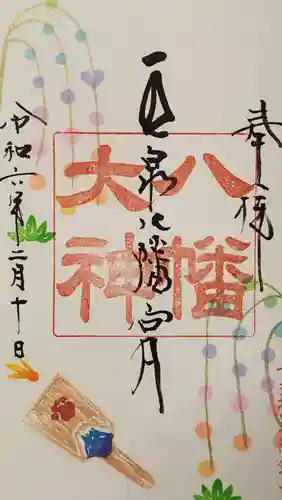 奉拝
八幡宮
八幡
大神
令和六年十二月十日